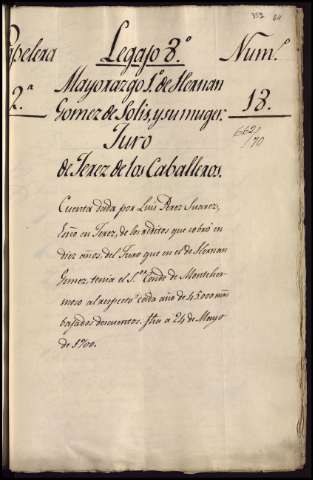 Papelera Legajo 8.º Num.º
2.ª Mayorazgo 1.º de Hernan 18.
Gomez de Solis, y su muger.
Juro
de Jerez de los Caballeros.
662/
/70
Cuenta dada por Luis Perez Suarez,
en Jerez, de los réditos que cobró en
diez años, del Juro que en el de Hernan
Gomez, tenia el S.or Conde de Montehermoso
al respecto cada año de 45000 mrs
bajados descuentos. Fha a 24 de Mayo
de 1700.